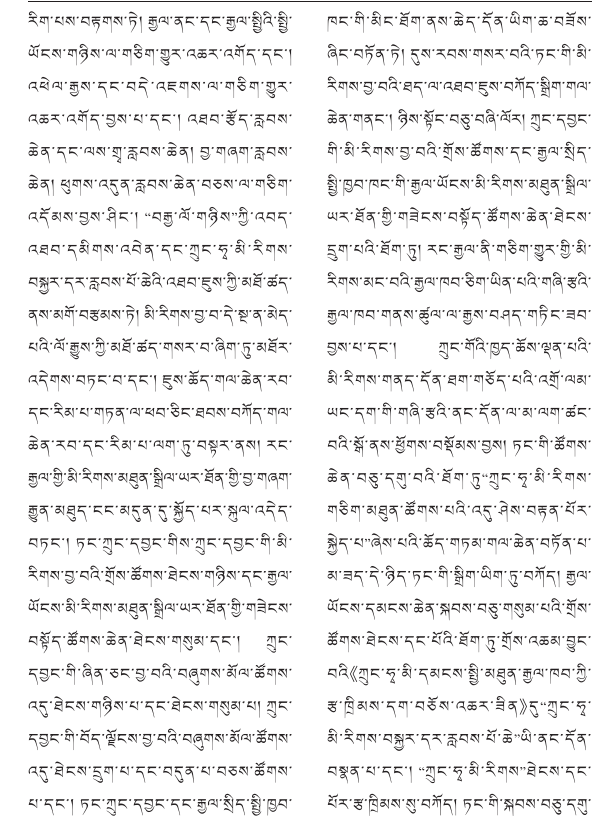 རིག་པས་བརྟགས་ཏེ། རྒྱལ་ནང་དང་རྒྱལ་སྤྱིའི་སྤྱི་
ཡོངས་གཉིས་ལ་གཅིག་གྱུར་འཆར་འགོད་དང་།
འཕེལ་རྒྱས་དང་བདེ་འཇགས་ལ་གཅིག་གྱུར་
འཆར་འགོད་བྱས་པ་དང་། འཐབ་རྩོད་རླབས་
ཆེན་དང་ལས་གྲྭ་རླབས་ཆེན། བྱ་གཞག་རླབས་
ཆེན། ཕུགས་འདུན་རླབས་ཆེན་བཅས་ལ་གཅིག་
འདོམས་བྱས་ཤིང་། “བརྒྱ་ལོ་གཉིས”ཀྱི་འབད་
འཐབ་དམིགས་འབེན་དང་ཀྲུང་ཧྭ་མི་རིགས་
བསྐྱར་དར་རླབས་པོ་ཆེའི་འཐབ་ཇུས་ཀྱི་མཐོ་ཚད་
ནས་མགོ་བརྩམས་ཏེ། མི་རིགས་བྱ་བ་དེ་སྔ་ན་མེད་
པའི་ལོ་རྒྱུས་ཀྱི་མཐོ་ཚད་གསར་བ་ཞིག་ཏུ་མཐོར་
འདེགས་བཏང་བ་དང་། ཇུས་ཆོད་གལ་ཆེན་རབ་
དང་རིམ་པ་གཏན་ལ་ཕབ་ཅིང་ཐབས་བཀོད་གལ་
ཆེན་རབ་དང་རིམ་པ་ལག་ཏུ་བསྟར་ནས། རང་
རྒྱལ་གྱི་མི་རིགས་མཐུན་སྒྲིལ་ཡར་ཐོན་གྱི་བྱ་གཞག་
རྒྱུན་མཐུད་ངང་མདུན་དུ་སྐྱོད་པར་སྐུལ་འདེད་
བཏང་། ཏང་ཀྲུང་དབྱང་གིས་ཀྲུང་དབྱང་གི་མི་
རིགས་བྱ་བའི་གྲོས་ཚོགས་ཐེངས་གཉིས་དང་རྒྱལ་
ཡོངས་མི་རིགས་མཐུན་སྒྲིལ་ཡར་ཐོན་གྱི་གཟེངས་
བསྟོད་ཚོགས་ཆེན་ཐེངས་གསུམ་དང་། ཀྲུང་
དབྱང་གི་ཞིན་ཅང་བྱ་བའི་བཞུགས་མོལ་ཚོགས་
འདུ་ཐེངས་གཉིས་པ་དང་ཐེངས་གསུམ་པ། ཀྲུང་
དབྱང་གི་བོད་ལྗོངས་བྱ་བའི་བཞུགས་མོལ་ཚོགས་
འདུ་ཐེངས་དྲུག་པ་དང་བདུན་པ་བཅས་ཚོགས་
པ་དང་། ཏང་ཀྲུང་དབྱང་དང་རྒྱལ་སྲིད་སྤྱི་ཁྱབ་
ཁང་གི་མིང་ཐོག་ནས་ཆེད་དོན་ཡིག་ཆ་བཟོས་
ཞིང་བཏོན་ཏེ། དུས་རབས་གསར་བའི་ཏང་གི་མི་
རིགས་བྱ་བའི་ཐད་ལ་འཐབ་ཇུས་བཀོད་སྒྲིག་གལ་
ཆེན་གནང་། ཉིས་སྟོང་བཅུ་བཞི་ལོར། ཀྲུང་དབྱང་
གི་མི་རིགས་བྱ་བའི་གྲོས་ཚོགས་དང་རྒྱལ་སྲིད་
སྤྱི་ཁྱབ་ཁང་གི་རྒྱལ་ཡོངས་མི་རིགས་མཐུན་སྒྲིལ་
ཡར་ཐོན་གྱི་གཟེངས་བསྟོད་ཚོགས་ཆེན་ཐེངས་
དྲུག་པའི་ཐོག་ཏུ། རང་རྒྱལ་ནི་གཅིག་གྱུར་གྱི་མི་
རིགས་མང་བའི་རྒྱལ་ཁབ་ཅིག་ཡིན་པའི་གཞི་རྩའི་
རྒྱལ་ཁབ་གནས་ཚུལ་ལ་རྒྱས་བཤད་གཏིང་ཟབ་
བྱས་པ་དང་། ཀྲུང་གོའི་ཁྱད་ཆོས་ལྡན་པའི་
མི་རིགས་གནད་དོན་ཐག་གཅོད་པའི་འགྲོ་ལམ་
ཡང་དག་གི་གཞི་རྩའི་ནང་དོན་ལ་མ་ལག་ཚང་
བའི་སྒོ་ནས་ཕྱོགས་བསྡོམས་བྱས། ཏང་གི་ཚོགས་
ཆེན་བཅུ་དགུ་བའི་ཐོག་ཏུ“ཀྲུང་ཧྭ་མི་རིགས་
གཅིག་མཐུན་ཚོགས་པའི་འདུ་ཤེས་བརྟན་པོར་
སྐྱེད་པ”ཞེས་པའི་ཆོད་གཏམ་གལ་ཆེན་བཏོན་པ་
མ་ཟད་དེ་ཉིད་ཏང་གི་སྒྲིག་ཡིག་ཏུ་བཀོད། རྒྱལ་
ཡོངས་དམངས་ཆེན་སྐབས་བཅུ་གསུམ་པའི་གྲོས་
ཚོགས་ཐེངས་དང་པོའི་ཐོག་ཏུ་གྲོས་འཆམ་བྱུང་
བའི《ཀྲུང་ཧྭ་མི་དམངས་སྤྱི་མཐུན་རྒྱལ་ཁབ་ཀྱི་
རྩ་ཁྲིམས་དག་བཅོས་འཆར་ཟིན》དུ“ཀྲུང་ཧྭ་
མི་རིགས་བསྐྱར་དར་རླབས་པོ་ཆེ”ཡི་ནང་དོན་
བསྣན་པ་དང་། “ཀྲུང་ཧྭ་མི་རིགས”ཐེངས་དང་
པོར་རྩ་ཁྲིམས་སུ་བཀོད། ཏང་གི་སྐབས་བཅུ་དགུ་